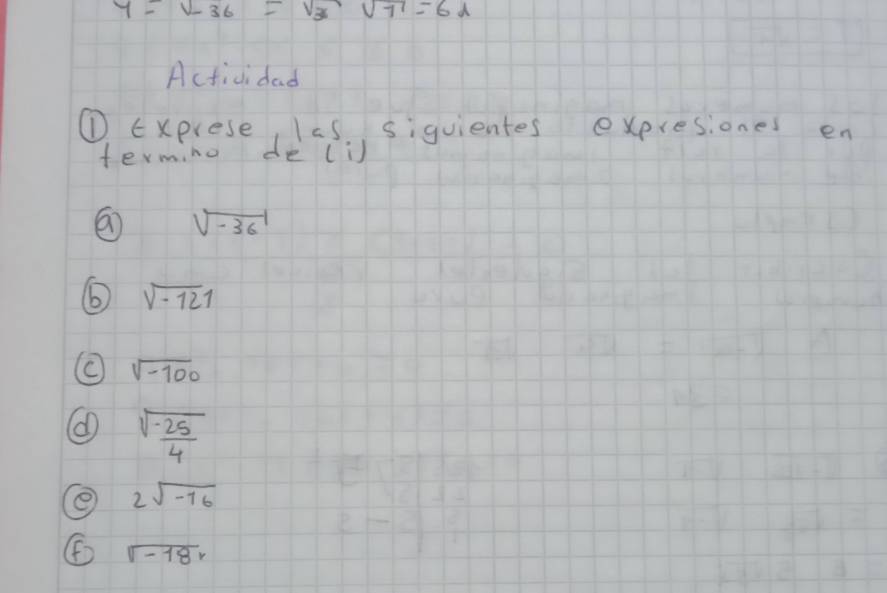 Y = √-36 = √36 √-1 = 6i
Actividad
① Exprese las siguientes expresiones en
termino de (i)
ⓐ √-36
ⓑ √-121
ⓒ √-100
ⓓ √-25/4
ⓔ 2√-16
ⓕ √-18